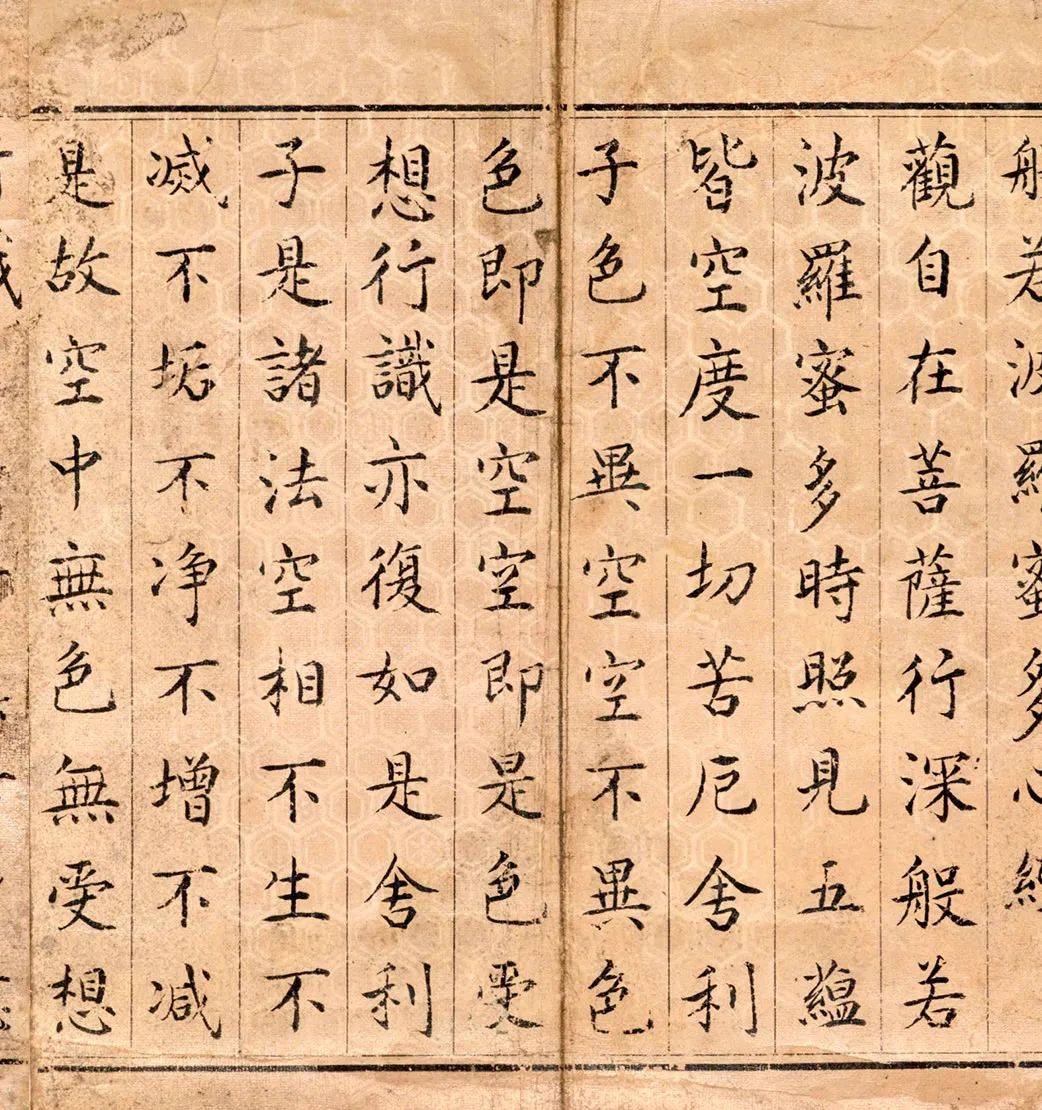 般若波羅蜜多心經
觀自在菩薩行深般若
波羅蜜多時照見五蘊
皆空度一切苦厄舍利
子色不異空空不異色
色即是空空即是色受
想行識亦復如是舍利
子是諸法空相不生不
滅不垢不净不增不减
是故空中無色無受想